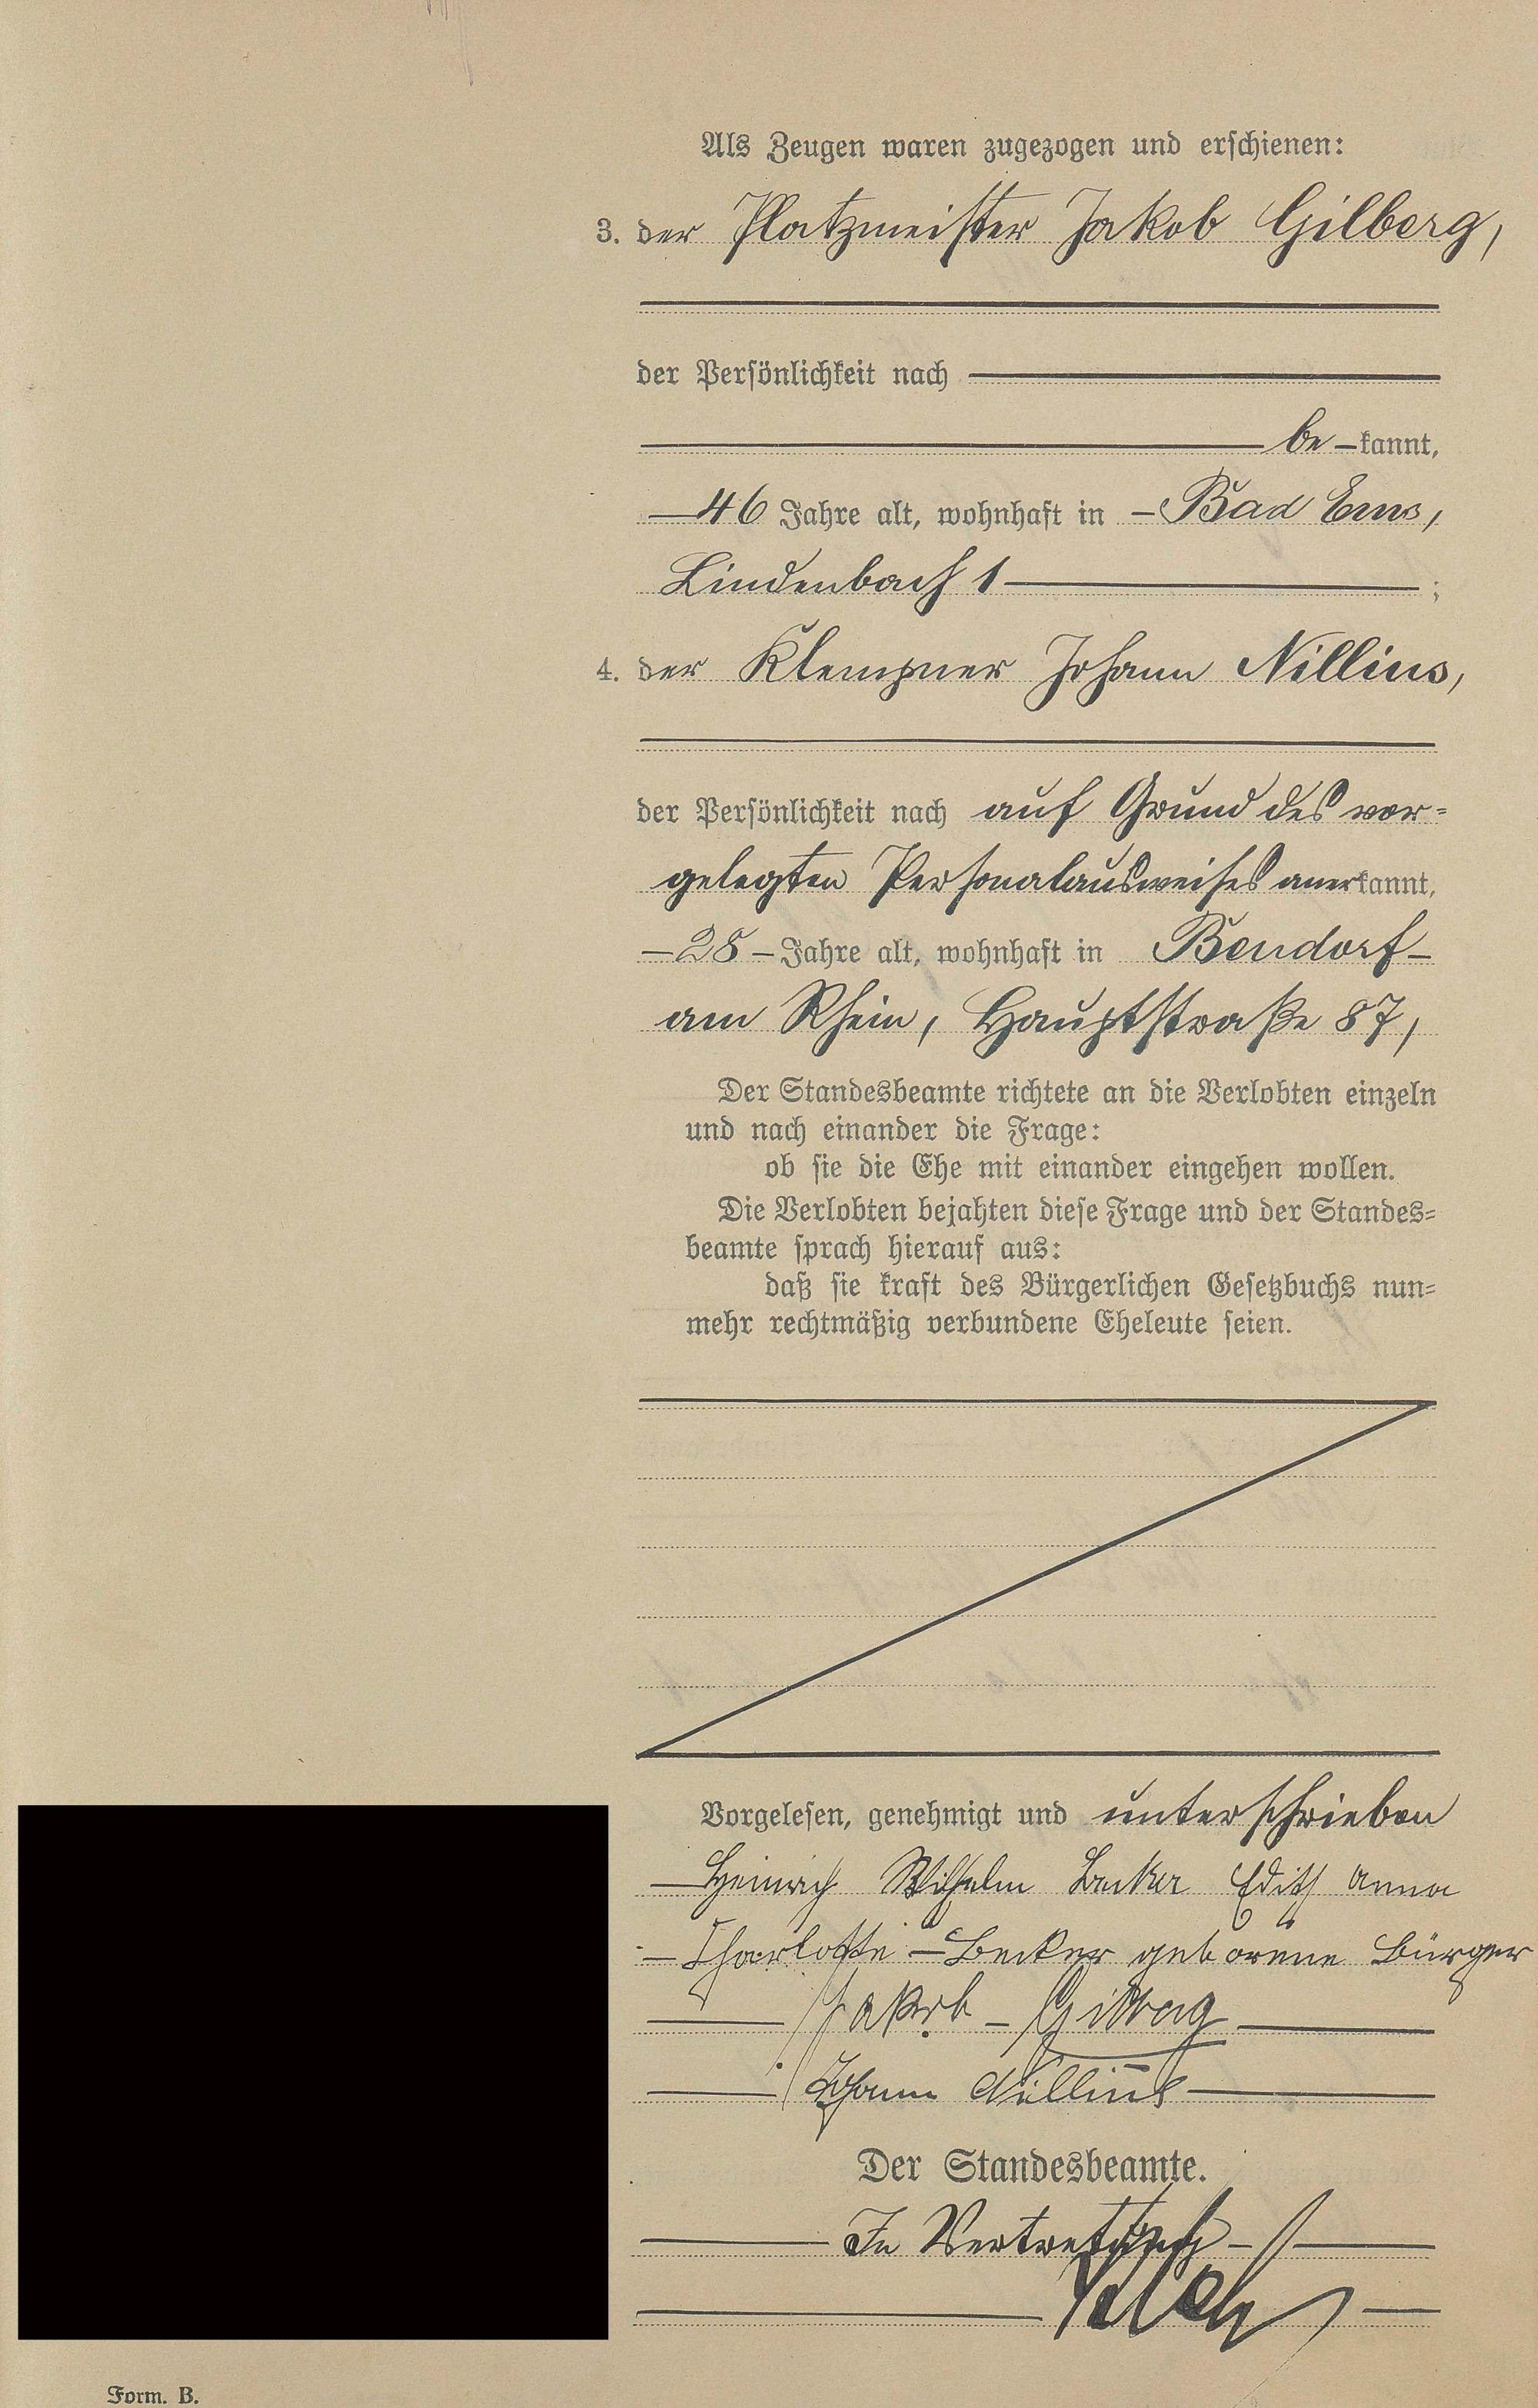 Als Zeugen waren zugezogen und erschienen:
3. der Platzmeister Jakob Gilberg,
der Persönlichkeit nach
be-kannt,
46 Jahre alt, wohnhaft in Bad Ems,
Lindenbach 1 ;
4. der Klempner Johann Nillius,
der Persönlichkeit nach auf Grund des vor-
gelegten Personalausweises anerkannt,
28 Jahre alt, wohnhaft in Bendorf
am Rhein, Hauptstraße 87,
Der Standesbeamte richtete an die Verlobten einzeln
und nach einander die Frage:
ob sie die Ehe mit einander eingehen wollen.
Die Verlobten bejahten diese Frage und der Standes-
beamte sprach hierauf aus:
daß sie kraft des Bürgerlichen Gesetzbuchs nun-
mehr rechtmäßig verbundene Eheleute seien.
Vorgelesen, genehmigt und unterschrieben
Heinrich Wilhelm Becker Edith Anna
Charlotte Becker geborene Bürger
Jakob Gilberg
Johann Nillius
Der Standesbeamte.
In Vertretung
Form. B.